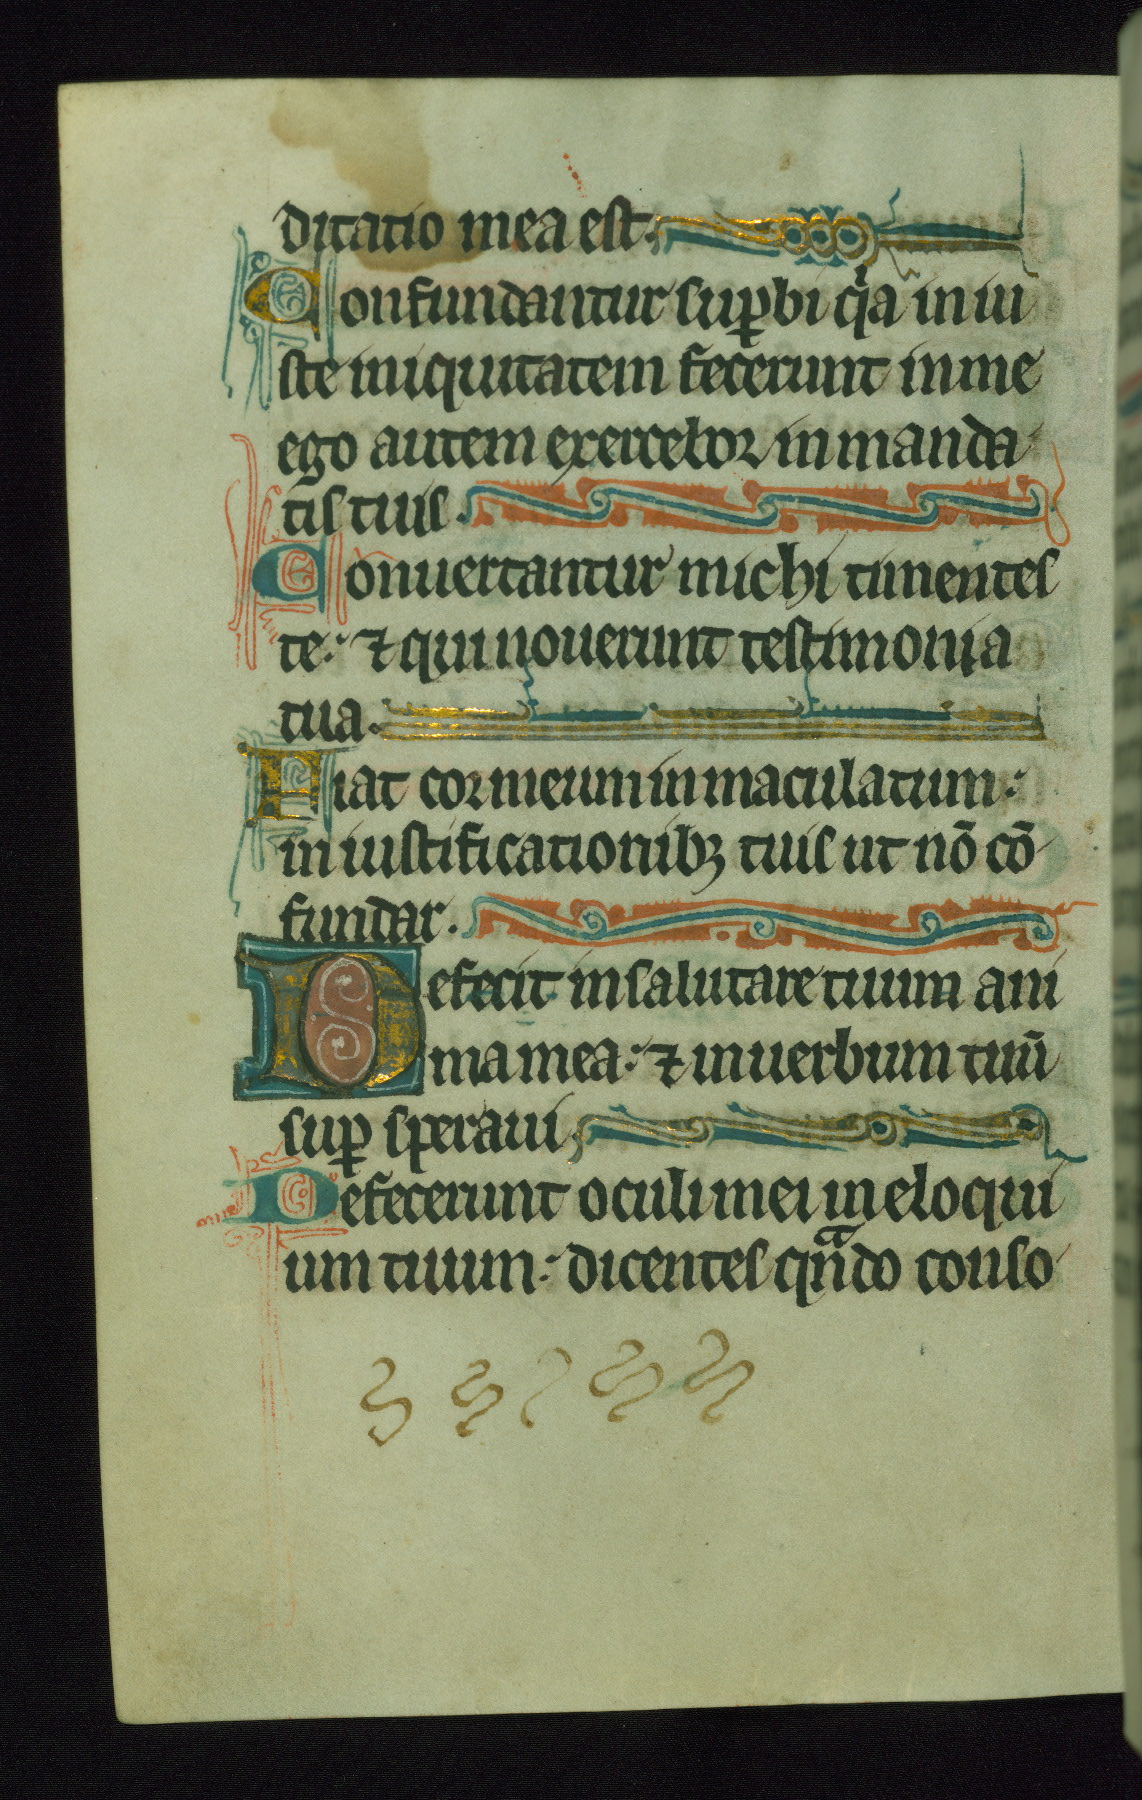 ditatio mea est.
Confundantur sup̲bi qͥa in iu
ste iniquitatem fecerunt in me
ego autem exercebor in manda
tis tuis.
Conuertantur michi timentes
te: ⁊ qui nouerunt testimonia
tua.
Fiat cor meum inmaculatum:
in iustificationibꝫ tuis ut nō cō
fundar.
Defecit in salutare tuum ani
ma mea: ⁊ in uerbum tuū
suꝑ speraui.
Defecerunt oculi mei in eloqui
um tuum: dicentes qᷓndo conso